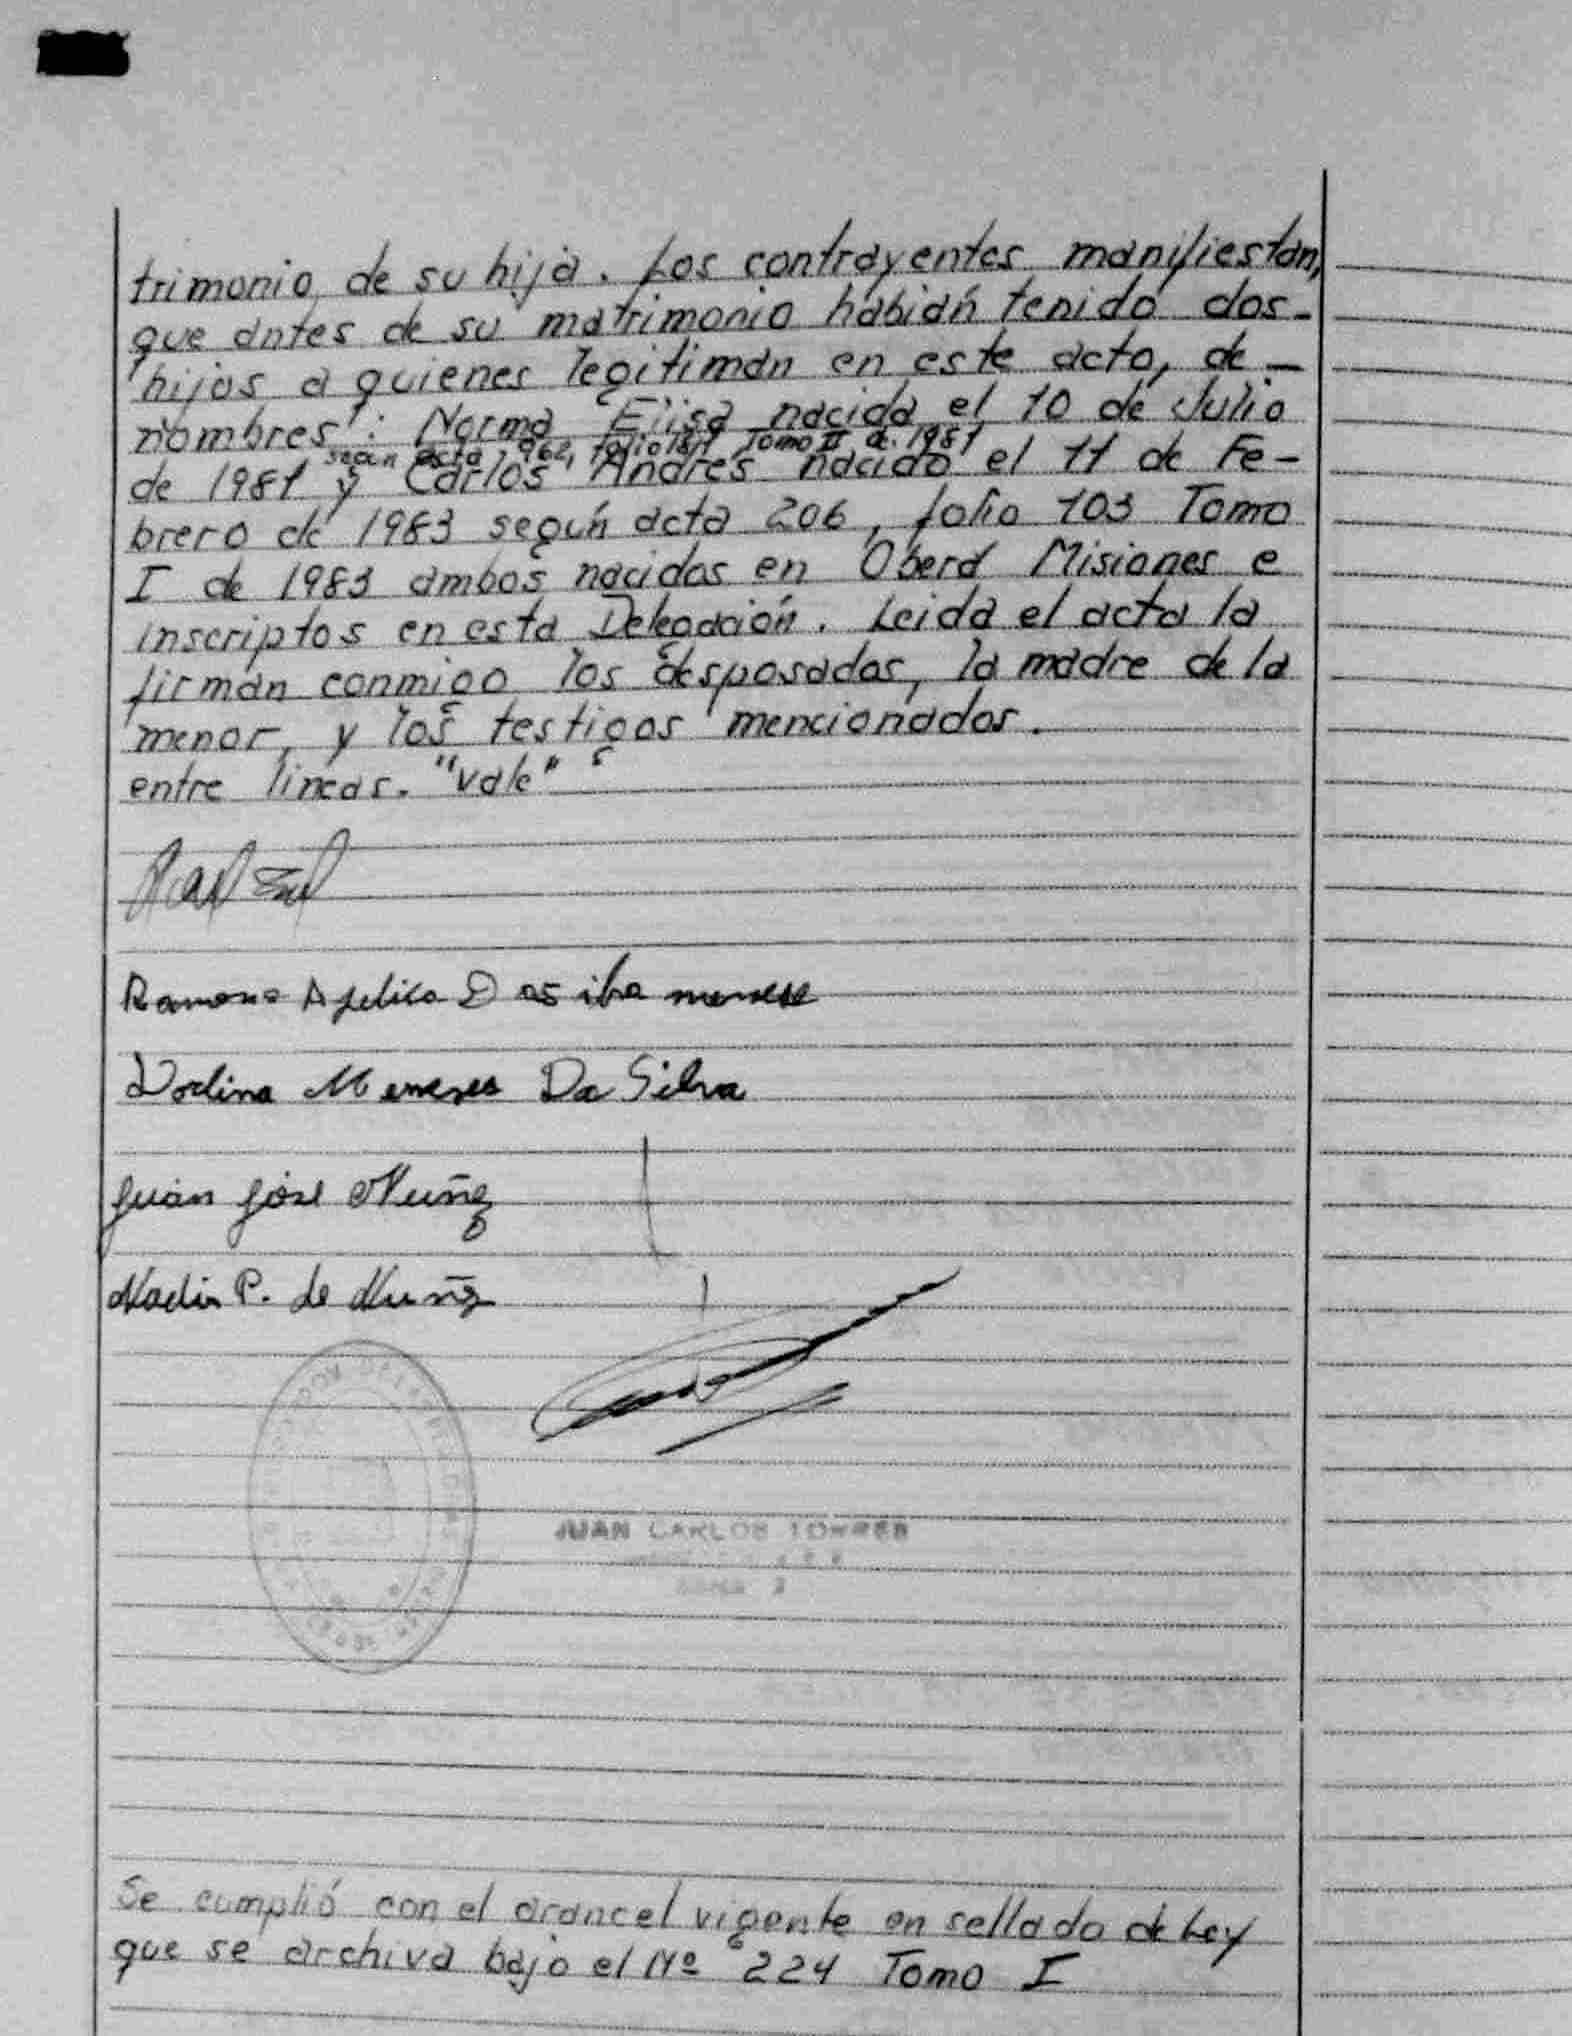 trimonio de su hija. Los contrayentes manifiestan,
que antes de su matrimonio habian tenido dos-
hijos a quienes legitiman en este acto, de-
nombres: Norma Elisa nacida el 10 de Julio
segun acta 962, folio 181 Tomo II de 1981
de 1981 y Carlos Andres nacido el 11 de Fe-
brero de 1983 según acta 206, folio 103 Tomo
I de 1983 ambos nacidos en Oberá Misiones e
inscriptos en esta Delegación. Leida el acta la
firman conmigo los desposados, la madre de la
menor, y los testigos mencionados.
entre lineas. "vale"
Ramona
Meneses Da Silva
Juan José Nuñez
P. de Nuñez
JUAN CARLOS TORRES
Se cumplió con el arancel vigente en sellado de Ley
que se archiva bajo el Nº 224 Tomo I